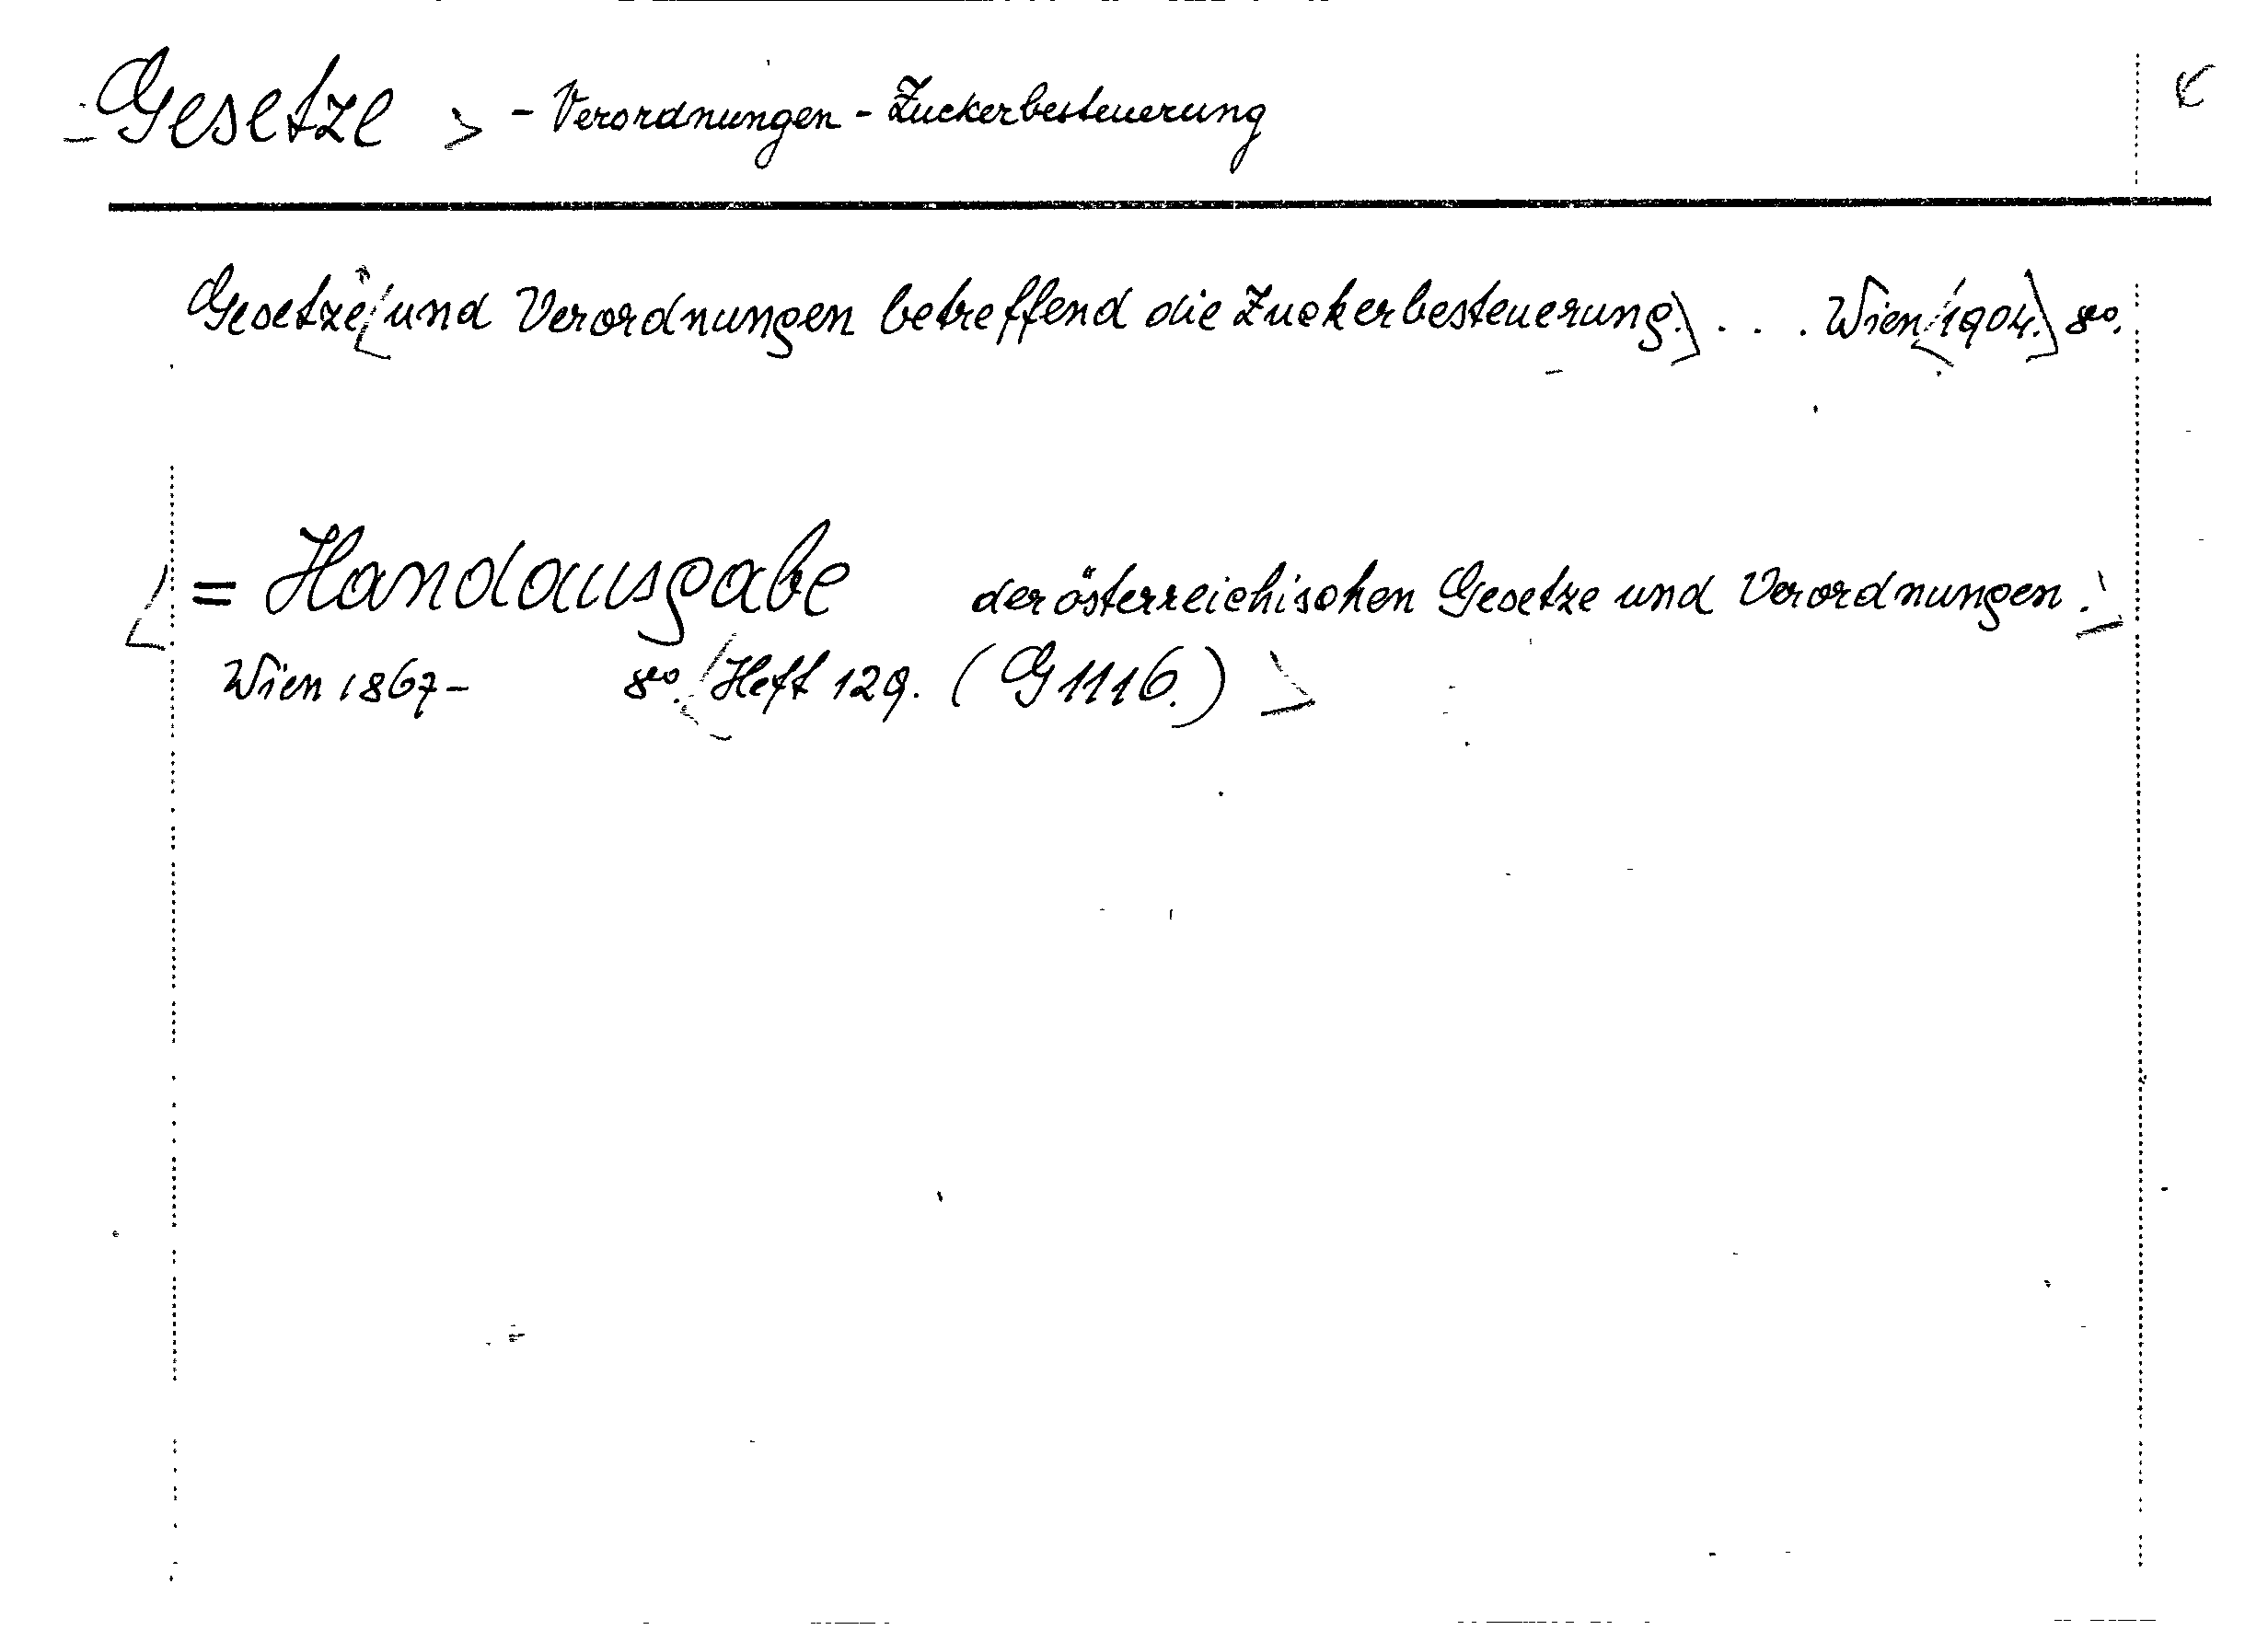 Gesetze > - Verordnungen - Zuckerbesteuerung
Gesetze und Verordnungen betreffend die Zuckerbesteuerung. . . . Wien, 1904. 8o.
= Handausgabe der österreichischen Gesetze und Verordnungen.
Wien 1867- 8o. Heft 129. (G 1116.)